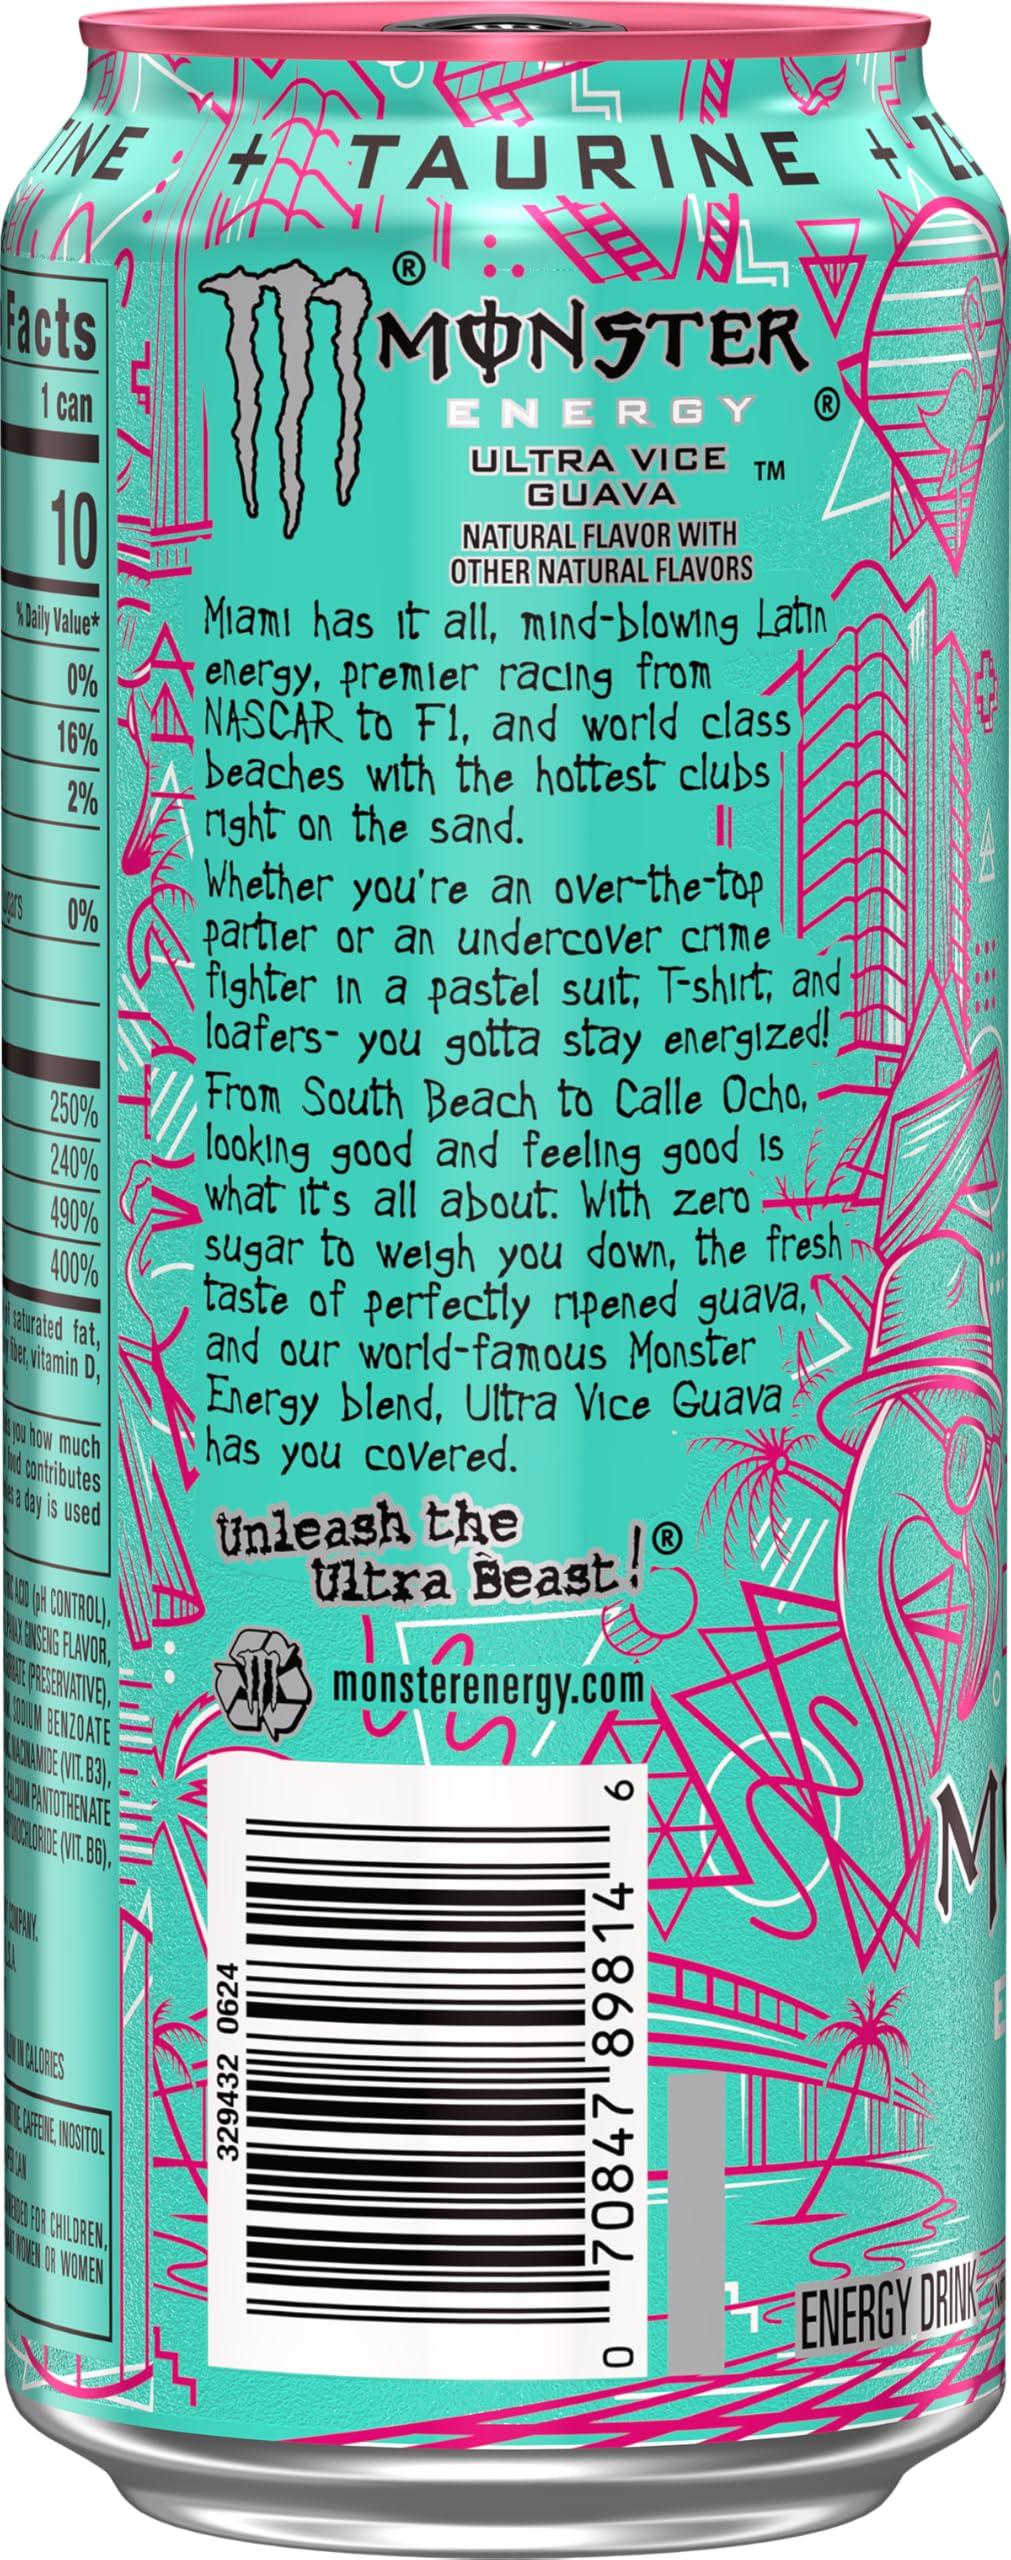 + TAURINE +
®
MONSTER
ENERGY ®
ULTRA VICE ™
GUAVA
NATURAL FLAVOR WITH
OTHER NATURAL FLAVORS
Miami has it all, mind-blowing Latin
energy, premier racing from
NASCAR to F1, and world class
beaches with the hottest clubs
right on the sand.
Whether you're an over-the-top
partier or an undercover crime
fighter in a pastel suit, T-shirt, and
loafers- you gotta stay energized!
From South Beach to Calle Ocho,
looking good and feeling good is
what it's all about. With zero
sugar to weigh you down, the fresh
taste of perfectly ripened guava,
and our world-famous Monster
Energy blend, Ultra Vice Guava
has you covered.
Unleash the
Ultra Beast! ®
monsterenergy.com
329432 0624
0 70847 89814 6
ENERGY DRINK
Facts
1 can
10
% Daily Value*
0%
16%
2%
0%
250%
240%
490%
400%
of saturated fat,
fiber, vitamin D,
you how much
food contributes
a day is used
ACID (pH CONTROL),
PANAX GINSENG FLAVOR,
(PRESERVATIVE),
SODIUM BENZOATE
NIACINAMIDE (VIT. B3),
CALCIUM PANTOTHENATE
(VIT. B6),
COMPANY.
IN CALORIES
CAFFEINE, INOSITOL
PER CAN
FOR CHILDREN,
WOMEN OR WOMEN